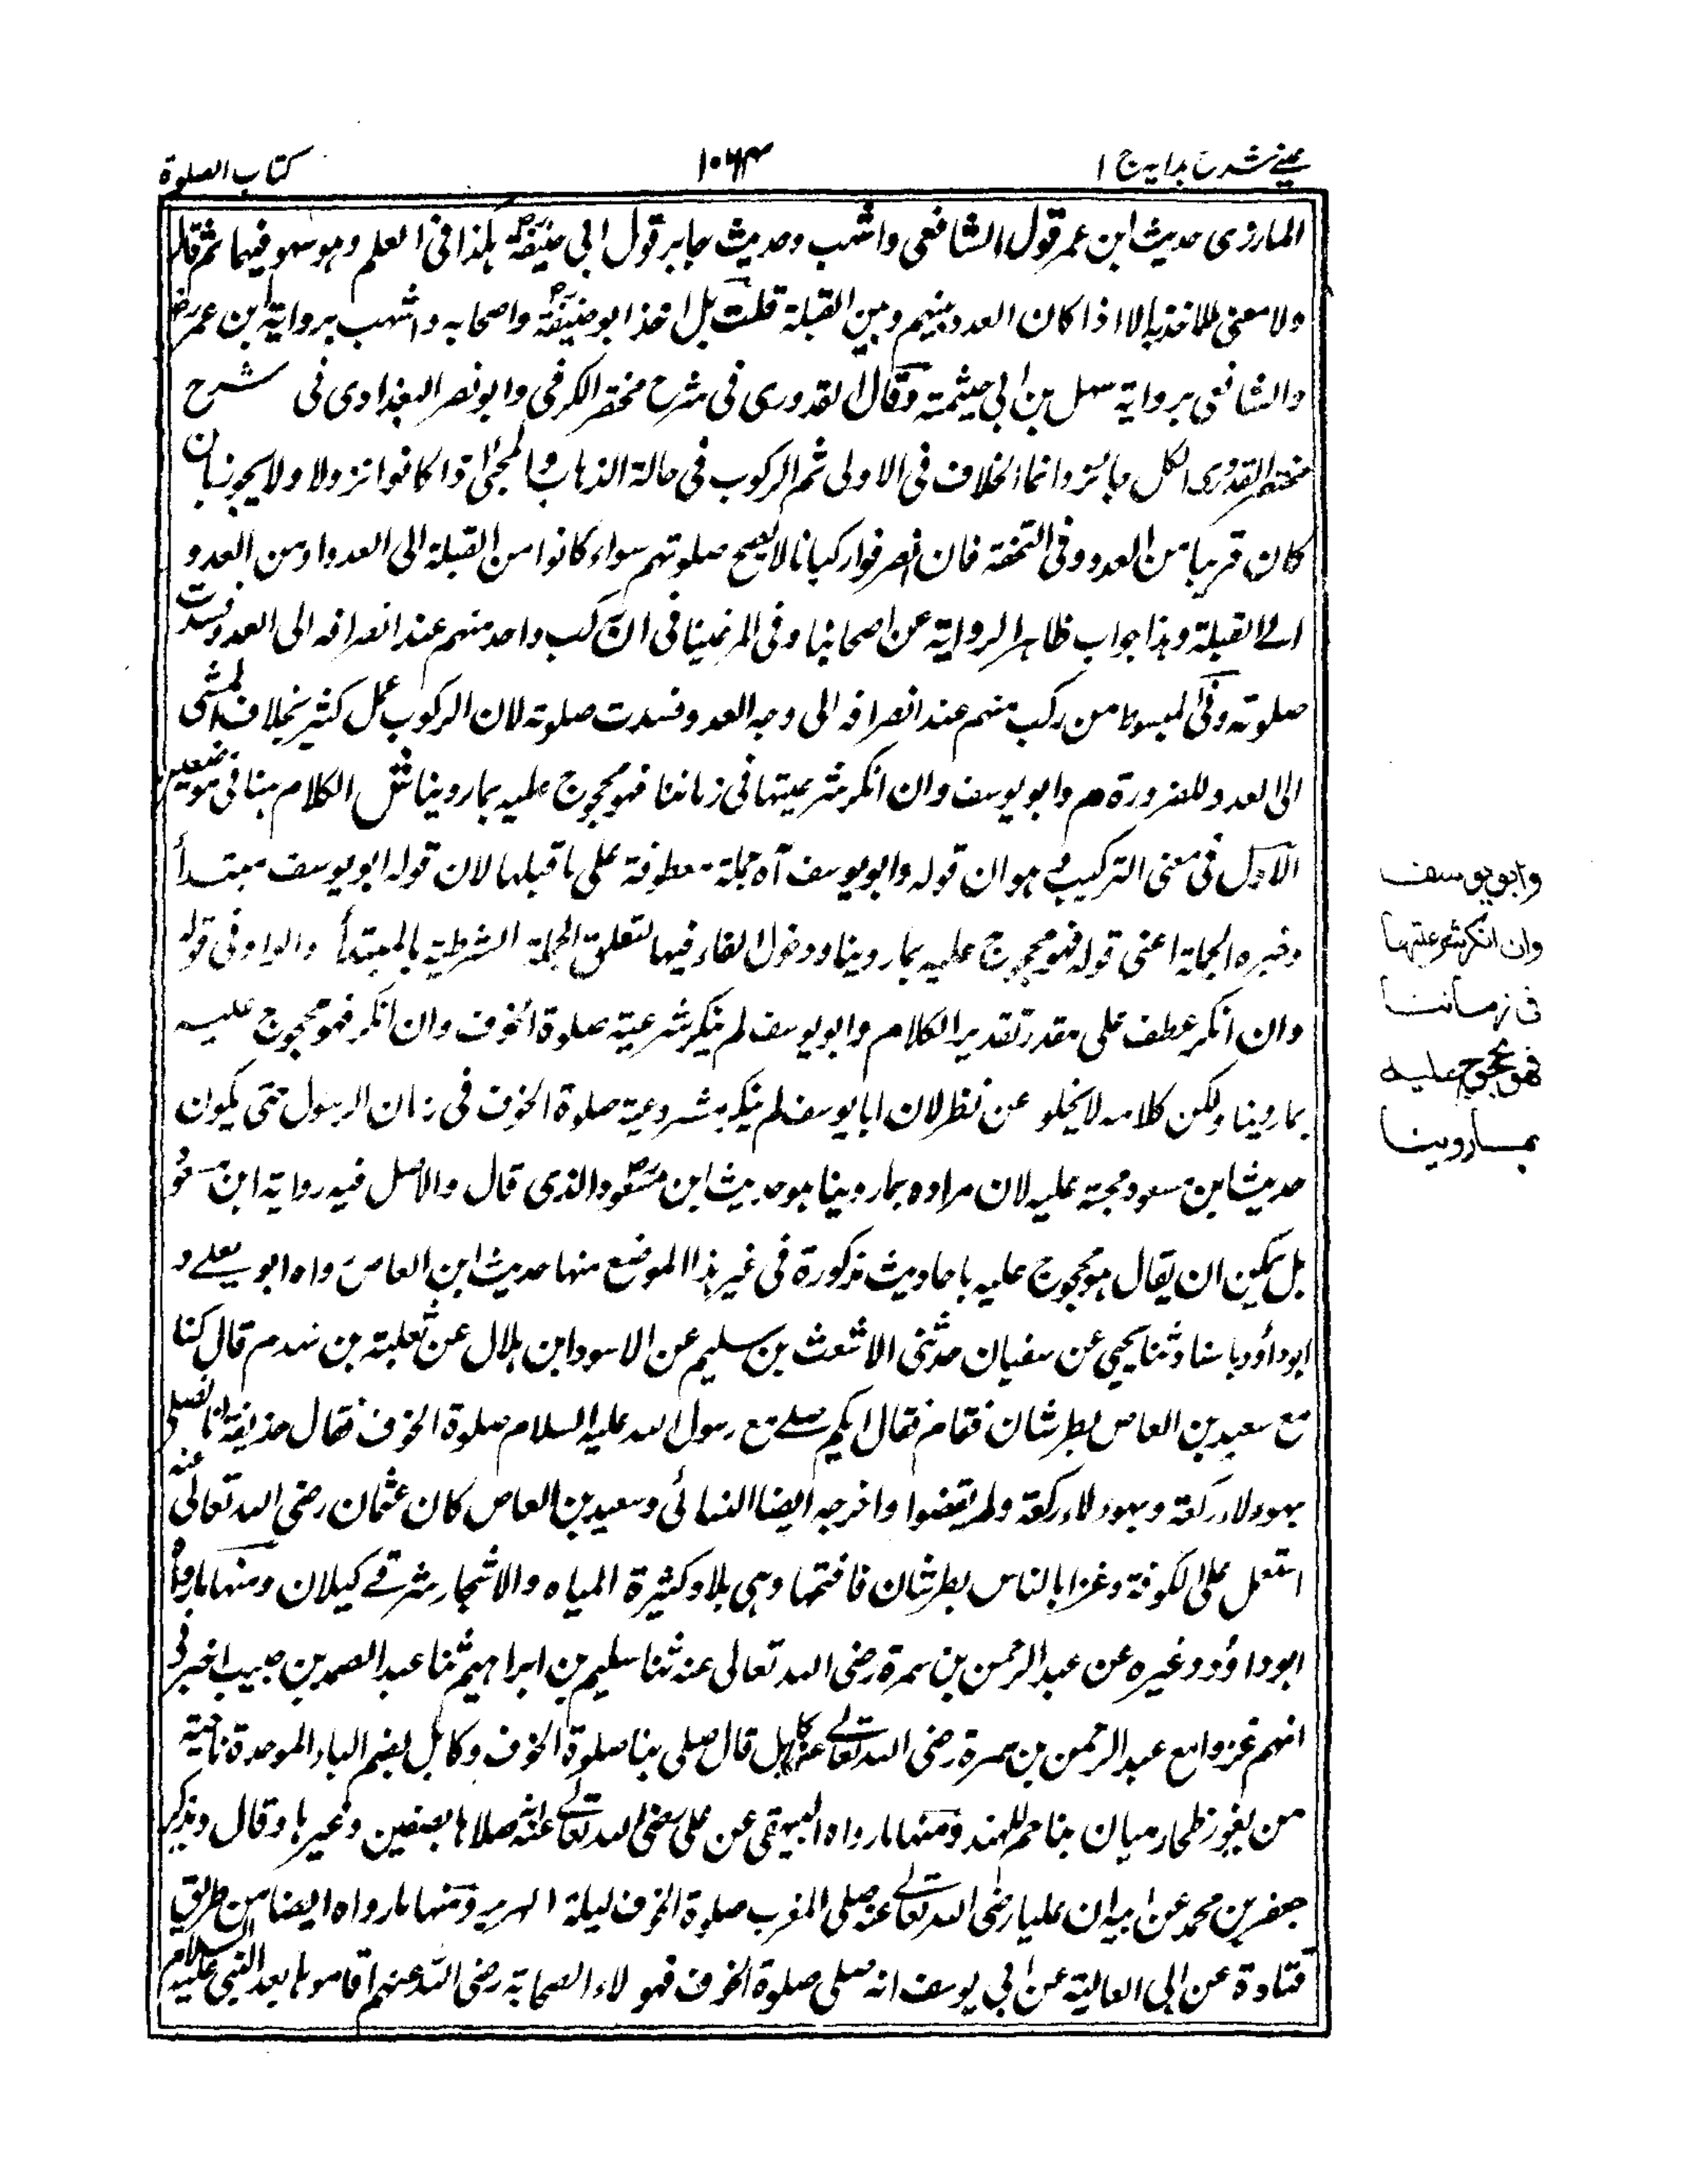 عيني شرح هدايه ج ١
١٠٦٣
كتاب الصلوة
المازری حديث ابن عمر قول الشافعی واشهب وحديث جابر قول ابی حنيفة هكذا فی العلم وهو سهو فيهما ثم قال
ولا معنی للاخذ بها الا اذا كان العدو بينهم وبين القبلة قلت بل اخذ ابو حنيفة واصحابه واشهب برواية ابن عمر
والشافعی برواية سهل بن ابی حيثمة وقال القدوری فی شرح مختصر الكرخی وابو نصر البغدادی فی شرح
مختصر القدوری الكل جائز وانما الخلاف فی الاولی ثم الركوب فی حالة الذهاب والمجئ اذا كانوا نزولا ولا يجوز بان
كان قريبا من العدو وفی التحفة فان انصرفوا ركبانا لا يصح صلوتهم سواء كانوا من القبلة الی العدو او من العدو
الی القبلة وهذا جواب ظاهر الرواية عن اصحابنا وفی المرغينانی ان ركب واحد منهم عند انصرافه الی العدو فسدت
صلوته وفی المبسوط من ركب منهم عند انصرافه الی وجه العدو فسدت صلوته لان الركوب عمل كثير بخلاف المشی
الی العدو للضرورة م وابو يوسف وان انكر شرعيتها فی زماننا فهو محجوج عليه بما روينا ش الكلام هنا فی موضعين
الاول فی معنی التركيب هو ان قوله وابو يوسف آه جملة معطوفة علی ما قبلها لان قوله ابو يوسف مبتدأ
وخبره الجملة اعنی قوله فهو محجوج عليه بما روينا ودخول الفاء فيها لتعلق الجملة الشرطية بالمبتدأ والواو فی قوله
وان انكر عطف علی مقدر تقدير الكلام وابو يوسف لم ينكر شرعية صلوة الخوف وان انكر فهو محجوج عليه
بما روينا ولكن كلامه لا يخلو عن نظر لان ابا يوسف لم ينكر مشروعية صلوة الخوف فی زمان الرسول حتی يكون
حديث ابن مسعود حجة عليه لان مراده بما روينا هو حديث ابن مسعود الذی قال والاصل فيه رواية ابن مسعود
بل يمكن ان يقال هو محجوج عليه باحاديث مذكورة فی غير هذا الموضع منها حديث ابن العاص رواه ابو يعلے و
ابو داؤد باسناد ثنا يحيی عن سفيان حدثنی الاشعث بن سليم عن الاسود ابن هلال عن ثعلبة بن زهدم قال كنا
مع سعيد بن العاص بطبرستان فقام فقال ايكم صلے مع رسول الله عليه السلام صلوة الخوف فقال حذيفة انا فصلی
بهؤلاء ركعة وبهؤلاء ركعة ولم يقضوا واخرجه ايضا النسائی وسعيد بن العاص كان عثمان رضی الله تعالی عنه
استعمل علی الكوفة وغزا بالناس بطبرستان فافتتحها وهی بلاد كثيرة المياه والاشجار شرقے كيلان ومنها ما رواه
ابو داؤد وغيره عن عبد الرحمن بن سمرة رضی الله تعالی عنه ثنا سليم بن ابراهيم ثنا عبد الصمد بن حبيب اخبرنی
انهم غزوا مع عبد الرحمن بن سمرة رضی الله تعالے عنه كابل قال صلی بنا صلوة الخوف وكابل بضم الباء الموحدة ناحية
من ثغور طخارستان متاخم للهند ومنها ما رواه البيهقی عن علی رضی الله تعالے عنه انه صلاها بصفين وغيرها وقال ويذكر
جعفر بن محمد عن ابيه ان عليا رضی الله تعالے عنه صلی المغرب صلوة الخوف ليلة الهرير ومنها ما رواه ايضا من طريق
قتادة عن ابی العالية عن ابی يوسف انه صلی صلوة الخوف فهولاء الصحابة رضی الله عنهم اقاموها بعد النبی عليه السلام
وابو يوسف
وان انكر شرعيتها
فی زماننا
فهو محجوج عليه
بما روينا